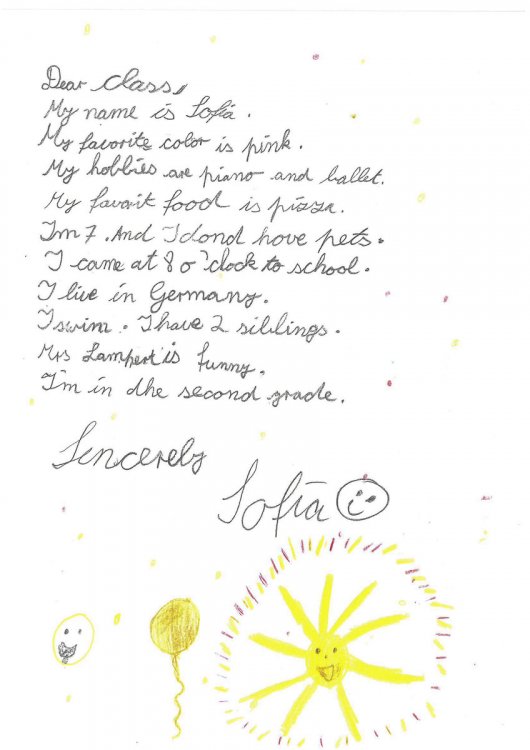 Dear class,
My name is Sofia.
My favorite color is pink.
My hobbies are piano and ballet.
My favorit food is pizza.
Im 7. And I dond hove pets.
I came at 8 o'clock to school.
I live in Germany.
I swim. I have 2 siblings.
Mrs Lampert is funny.
I'm in dhe second grade.
Sincerely
Sofia